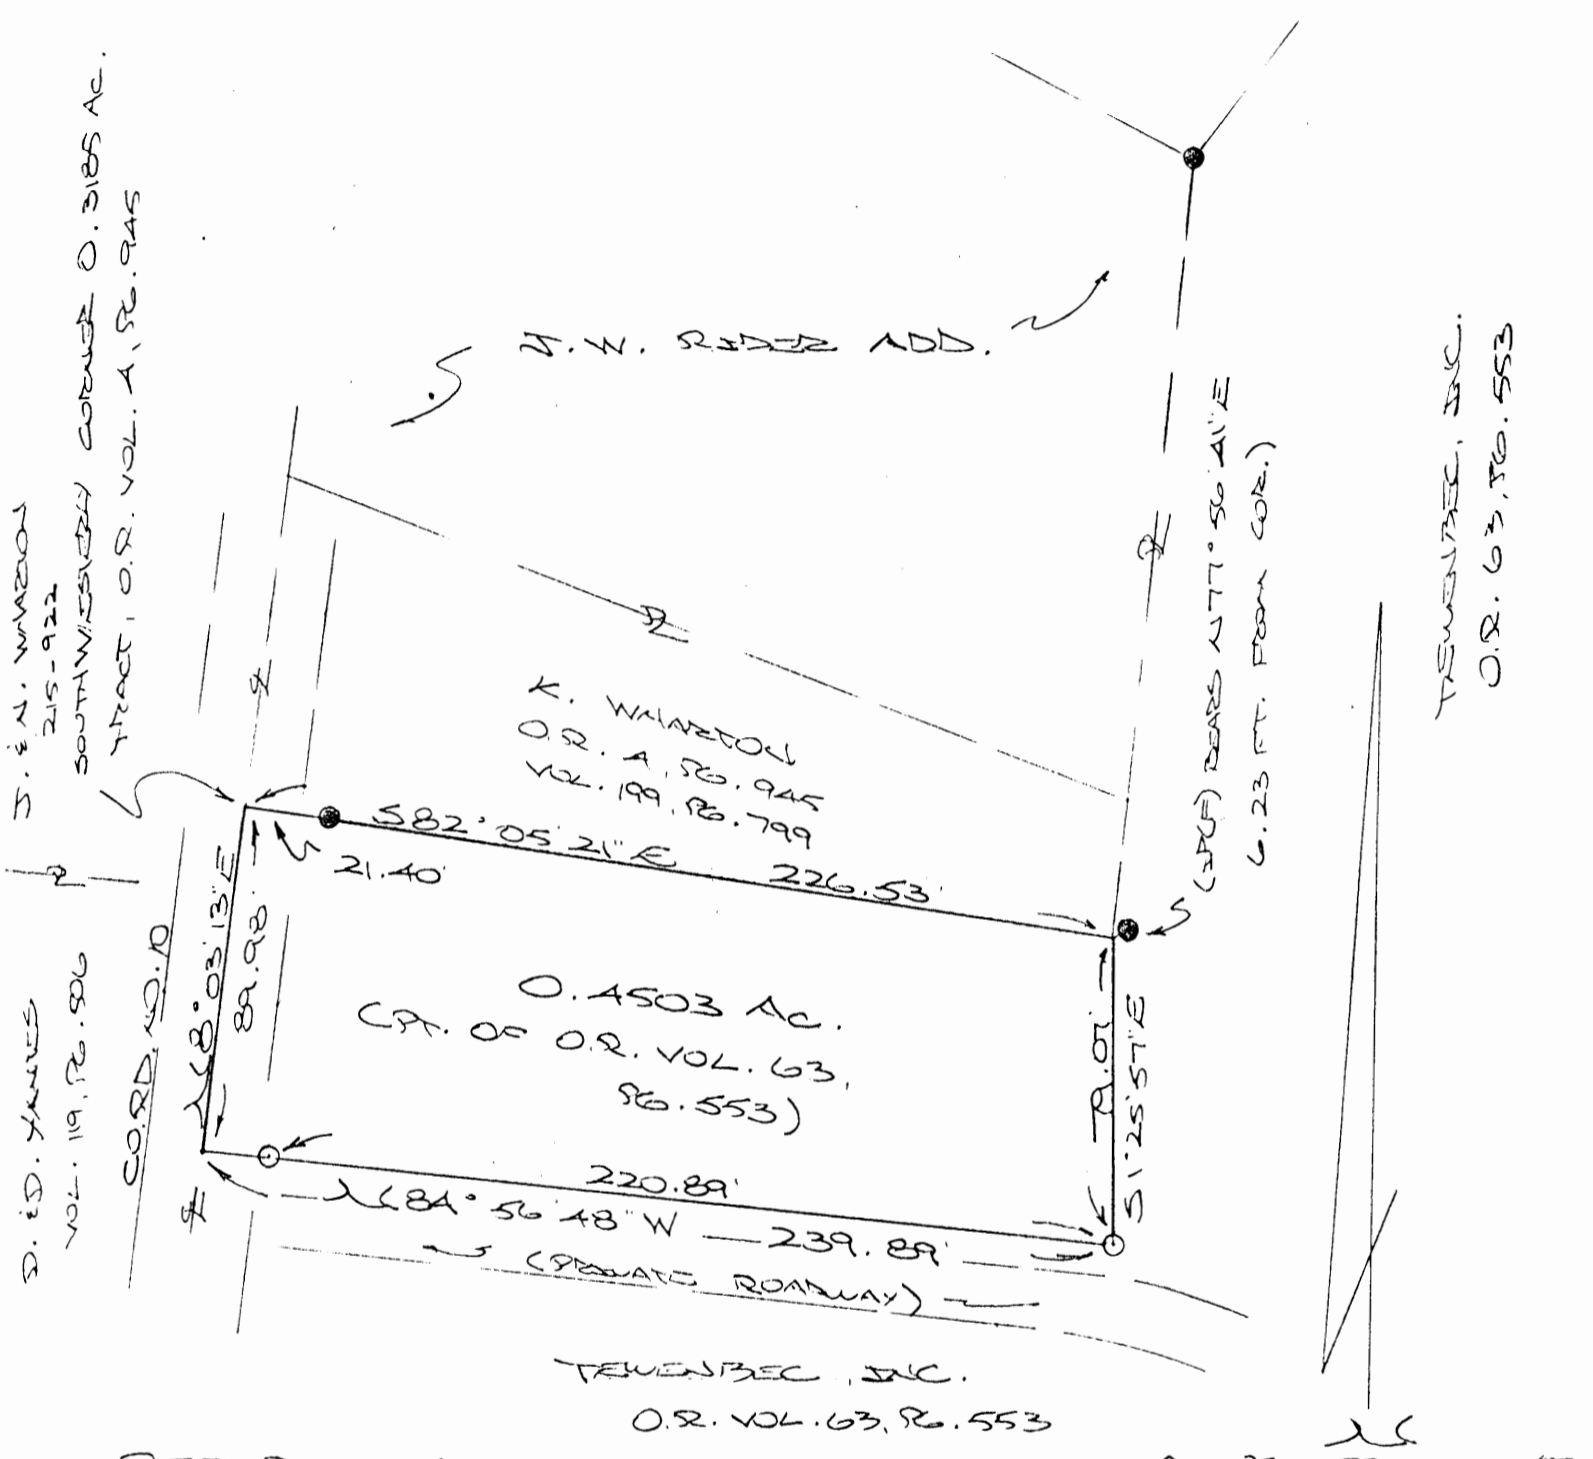 J. & N. WHARTON
215-922
SOUTHWESTERLY CORNER 0.3185 AC.
TRACT, O.R. VOL. A, PG. 945
J.W. RIDER ADD.
TEWENBEC, INC.
O.R. 63, PG. 553
(IPF) BEARS N77°56'41"E
6.23 FT. FROM COR.)
PL
PL
℄
K. WHARTON
O.R. A, PG. 945
VOL. 199, PG. 799
S82°05'21"E 226.53'
21.40'
PL
N8°03'13"E
89.98'
D. & D. YANTES
VOL. 119, PG. 506
CO. RD. NO. 10
0.4503 AC.
(PT. OF O.R. VOL. 63,
PG. 553)
79.01'
S1°25'57"E
220.89'
N84°56'48"W 239.89'
℄
(PRIVATE ROADWAY)
TEWENBEC, INC.
O.R. VOL. 63, PG. 553
N